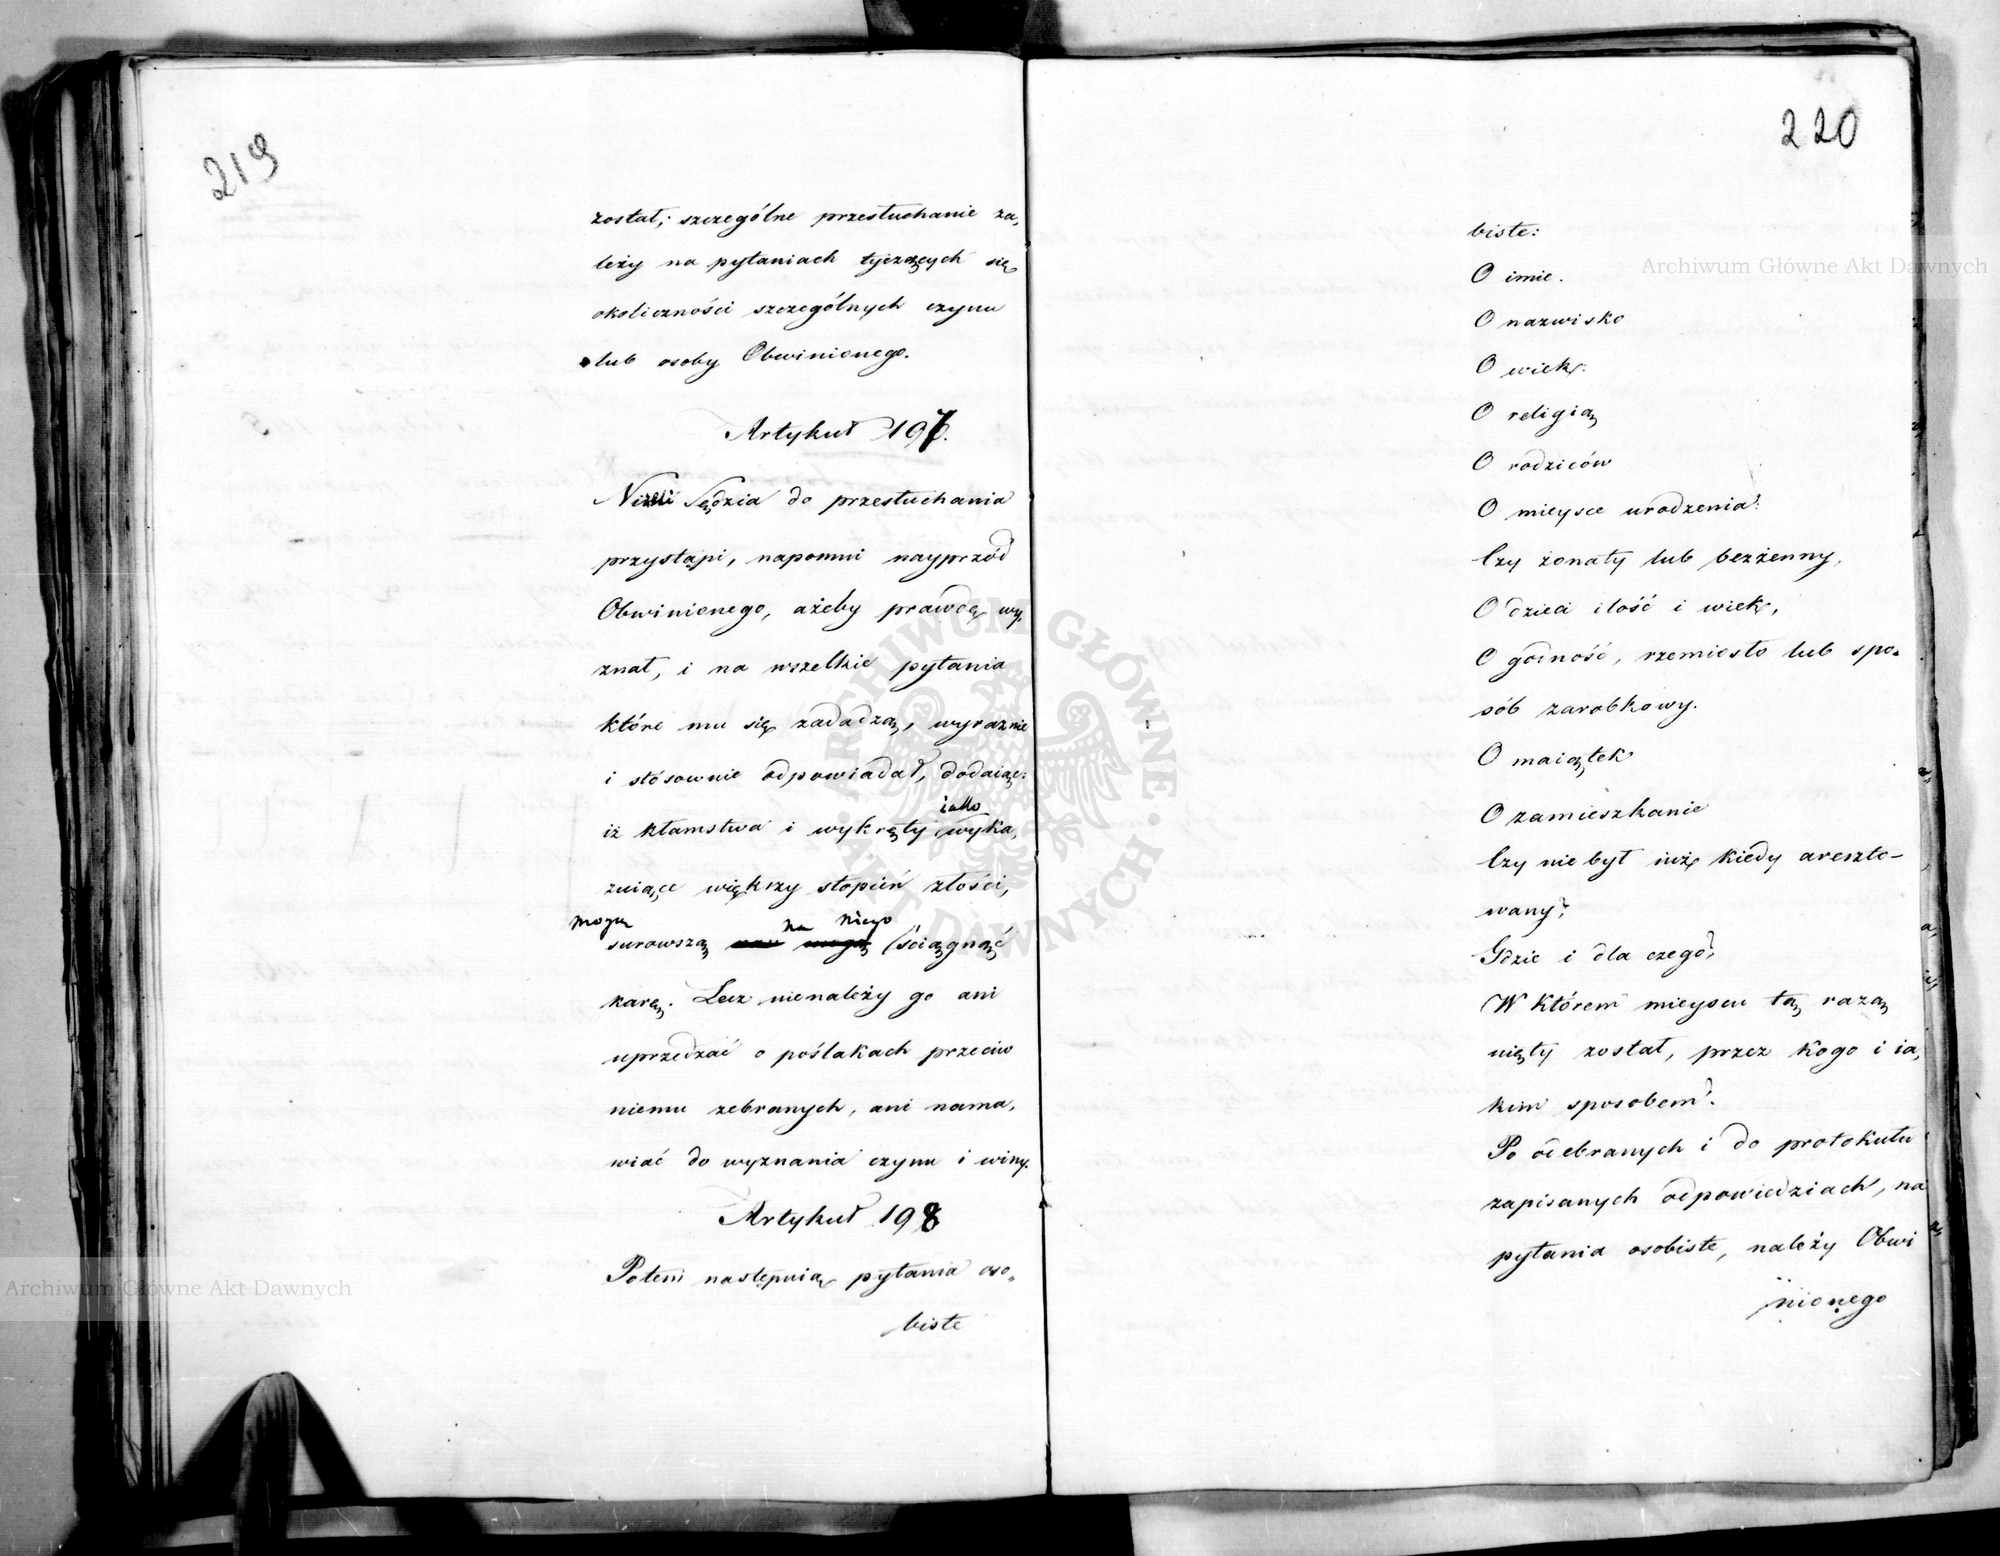 219
został; szczególne przesłuchanie za,
leży na pytaniach tyczących się
okoliczności szczególnych czynu
lub osoby Obwinionego.
Artykuł 197.
Niżeli Sędzia do przesłuchania
przystąpi, napomni nayprzód
Obwinionego, ażeby prawdę wy,
znał, i na wszelkie pytania
które mu się zadadzą, wyraznie
i stósownie odpowiadał, dodaiąc:
iako
iż kłamstwa i wykręty wyka,
zuiące większy stopień złości,
mogą na niego
surowszą ściągnąć
karę. Lecz nienależy go ani
uprzedzać o poślakach przeciw
niemu zebranych, ani nama,
wiać do wyznania czynu i winy.
Artykuł 198
Potem następuią pytania oso„
biste
220
biste:
O imie.
O nazwisko
O wiek:
O religią
O rodziców
O mieysce urodzenia?
Czy żonaty lub bezżenny,
O dzieci ilość i wiek,
O godność, rzemiesło lub spo„
sób zarobkowy.
O maiątek
O zamieszkanie
Czy nie był iuż kiedy areszto-
wany?
Gdzie i dla czego?
W którem mieyscu tą razą
uięty został, przez kogo i ia,
kim sposobem?
Po odebranych i do protokułu
zapisanych odpowiedziach, na
pytania osobiste, należy Obwi
nionego
Archiwum Główne Akt Dawnych
Archiwum Główne Akt Dawnych
ARCHIWUM GŁÓWNE · AKT DAWNYCH ·